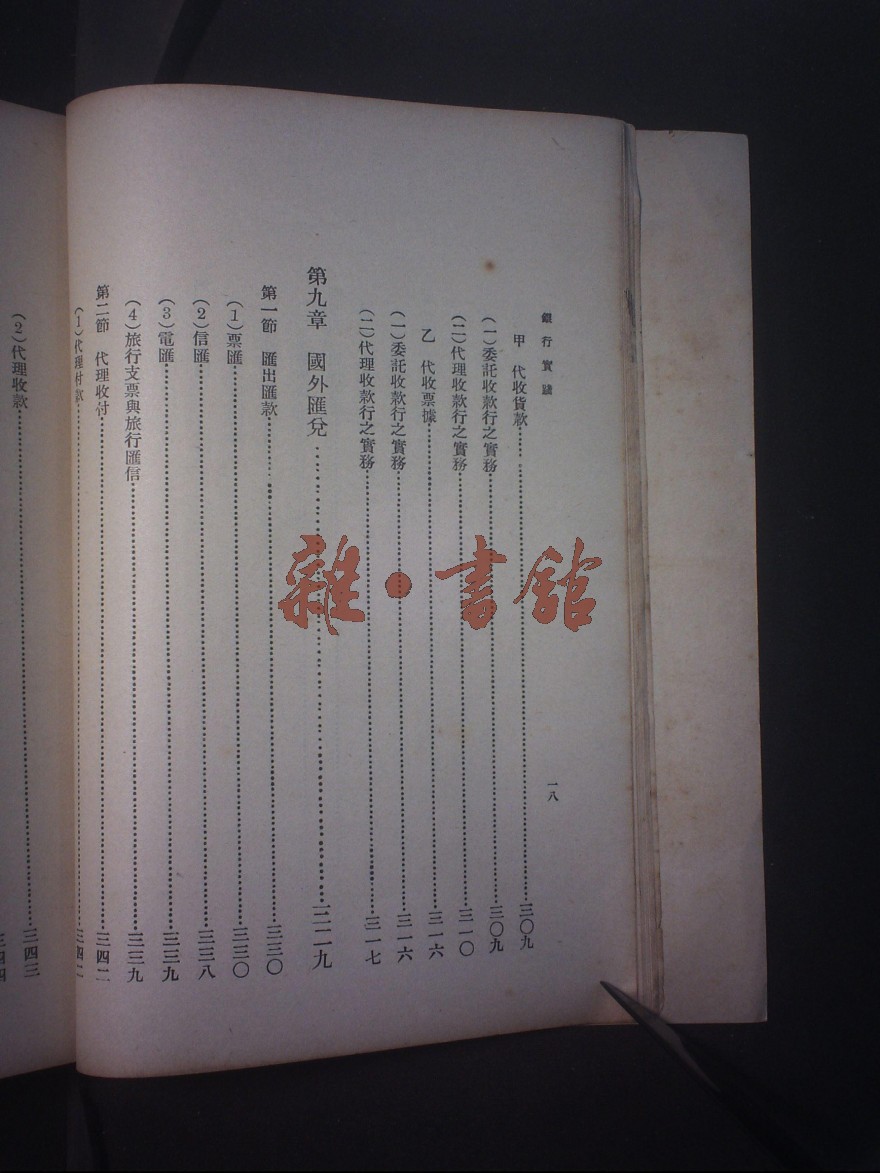 銀行實踐
一八
甲 代收貨款……三〇九
(一)委託收款行之實務……三〇九
(二)代理收款行之實務……三一〇
乙 代收票據……三一六
(一)委託收款行之實務……三一六
(二)代理收款行之實務……三一七
第九章 國外匯兌……三二九
第一節 匯出匯款……三三〇
(1)票匯……三三〇
(2)信匯……三三八
(3)電匯……三三九
(4)旅行支票與旅行匯信……三三九
第二節 代理收付……三四二
(1)代理付款……三四二
(2)代理收款……三四三
三四四
雜·書館